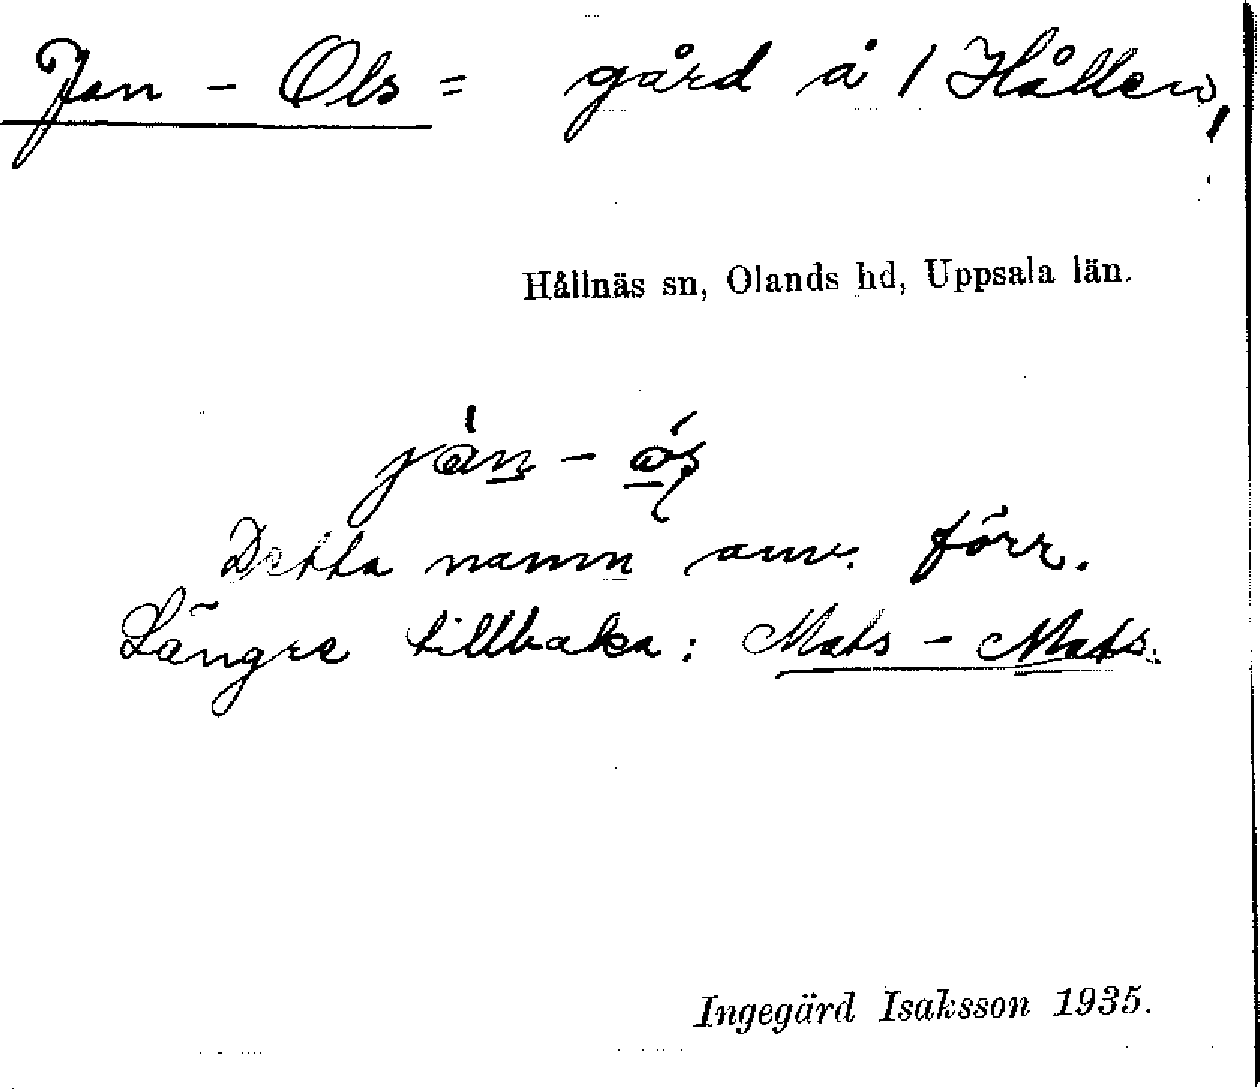 Jan - Ols = gård å 1 Hållen,
Hållnäs sn, Olands hd, Uppsala län.
Detta namn anv. förr.
Längre tillbaka: Mats - Mats.
Ingegärd Isaksson 1935.